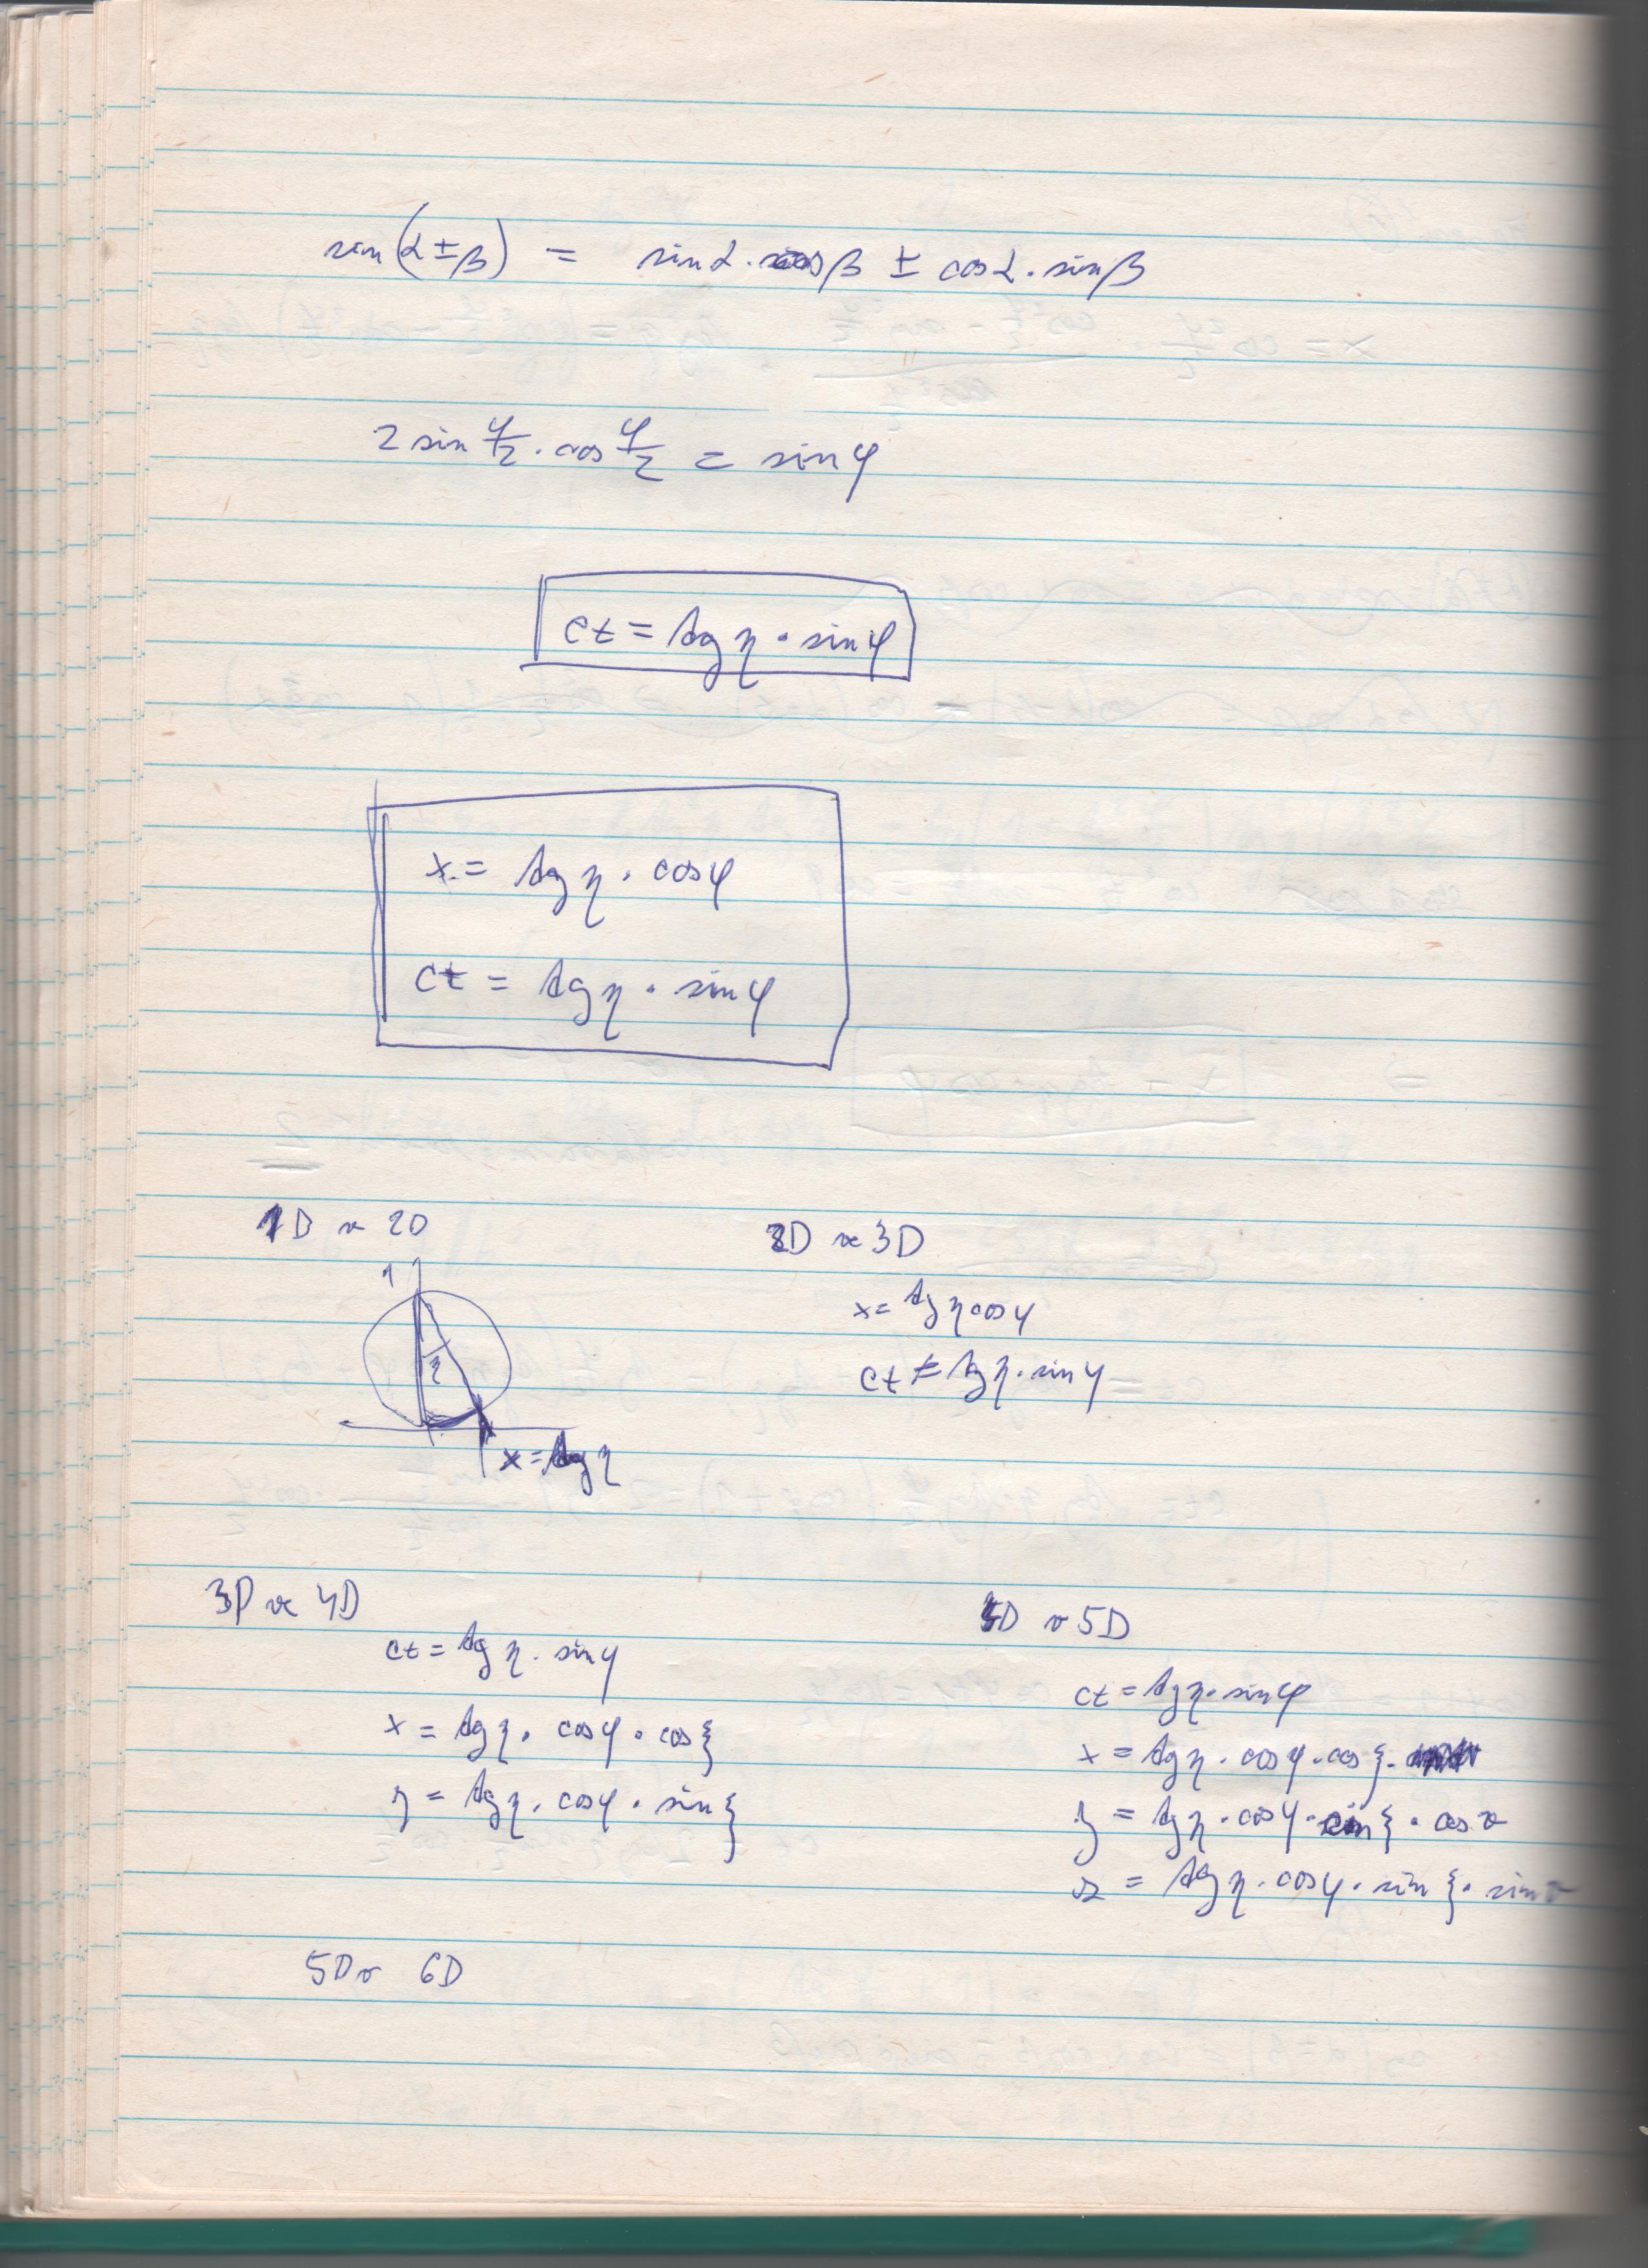 sin(α ± β) = sin α · cos β ± cos α · sin β
2 sin φ/2 · cos φ/2 = sin φ
ct = tg η · sin φ
x = tg η · cos φ
ct = tg η · sin φ
1D v 2D
1
η
x = tg η
2D ve 3D
x = tg η cos φ
ct = tg η · sin φ
3D ve 4D
ct = tg η · sin φ
x = tg η · cos φ · cos ξ
y = tg η · cos φ · sin ξ
4D v 5D
ct = tg η · sin φ
x = tg η · cos φ · cos ξ ·
y = tg η · cos φ · sin ξ · cos v
z = tg η · cos φ · sin ξ · sin v
5D v 6D